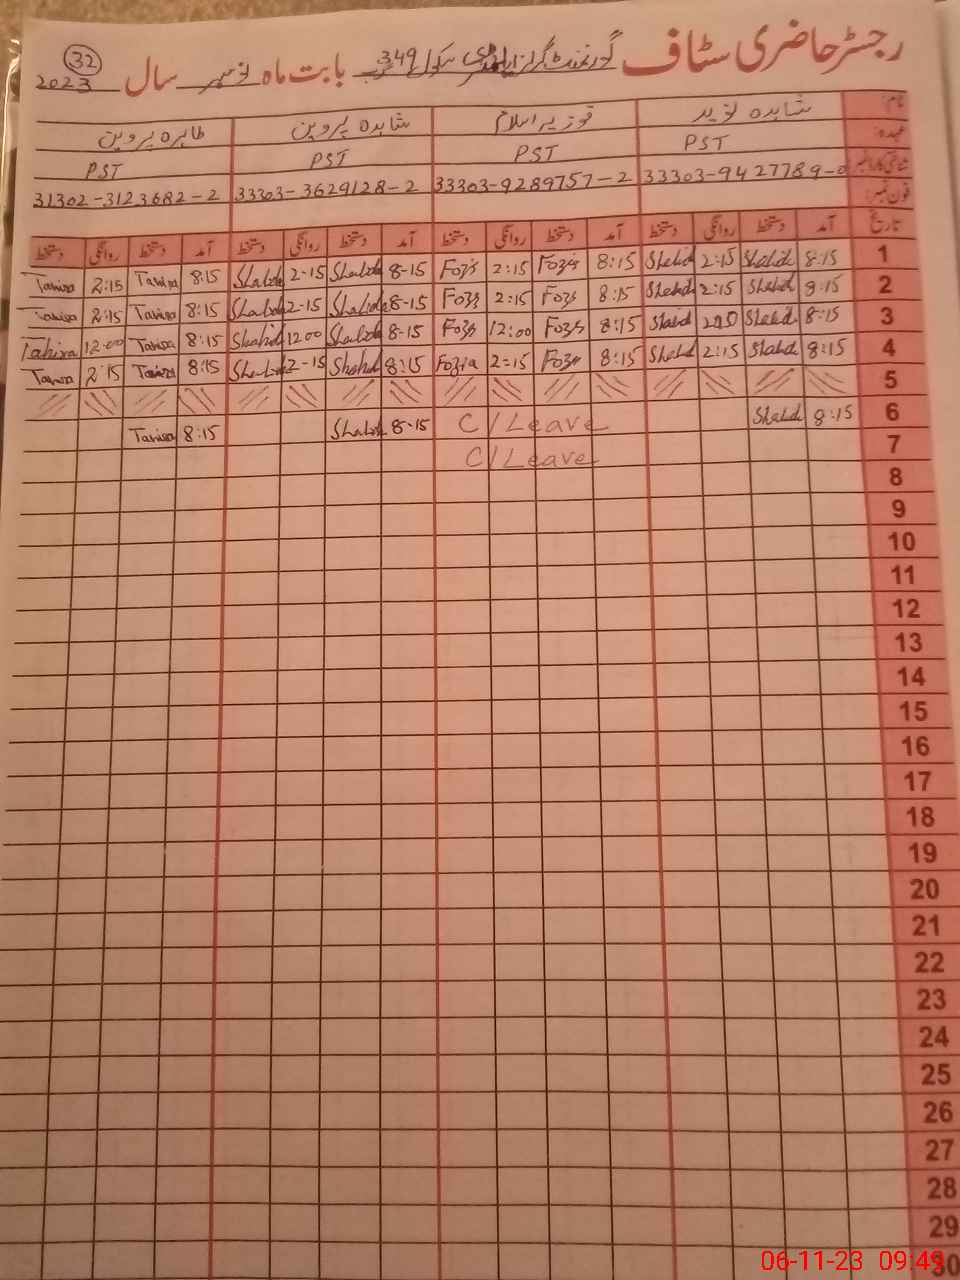 رجسٹر حاضری سٹاف گورنمنٹ گرلز پرائمری سکول 349 بابت ماہ نومبر سال 2023
32
نام: شاہدہ نوید فوزیہ اسلام شاہدہ پروین طاہرہ پروین
عہدہ: PST PST PST PST
شناختی کارڈ نمبر 33303-9427789-0 33303-9289757-2 33303-3629128-2 31302-3123682-2
فون نمبر:
تاریخ آمد دستخط روانگی دستخط آمد دستخط روانگی دستخط آمد دستخط روانگی دستخط آمد دستخط روانگی دستخط
1 8:15 Shahid 2:15 Shahid 8:15 Fozi 2:15 Fozi 8-15 Shahida 2-15 Shahida 8:15 Tahira 2:15 Tahira
2 8:15 Shahid 2:15 Shahid 8:15 Fozi 2:15 Fozi 8-15 Shahida 2-15 Shahida 8:15 Tahira 2:15 Tahira
3 8:15 Shahid Shahid 8:15 Fozi 12:00 Fozi 8-15 Shahida 1200 Shahid 8:15 Tahira 12:00 Tahira
4 8:15 Shahid 2:15 Shahid 8:15 Fozi 2:15 Fozia 8:15 Shahid 2-15 Shahid 8:15 Tahira 2:15 Tahira
5
6 8:15 Shahid C/Leave 8-15 Shahida 8:15 Tahira
7 C/Leave
8
9
10
11
12
13
14
15
16
17
18
19
20
21
22
23
24
25
26
27
28
29
30
06-11-23 09:49